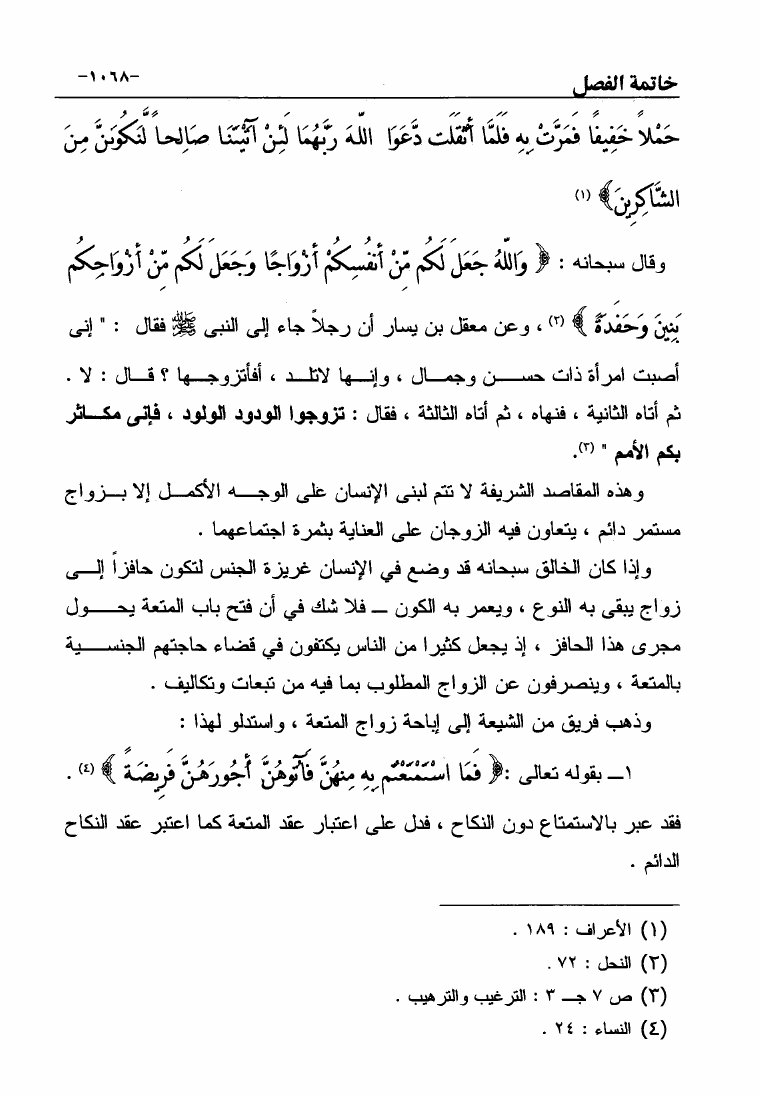 خاتمة الفصل
-١٠٦٨-
حَمْلاً خَفِيفًا فَمَرَّتْ بِهِ فَلَمَّا أَثْقَلَت دَّعَوَا اللَّهَ رَبَّهُمَا لَئِنْ آتَيْتَنَا صَالِحاً لَّنَكُونَنَّ مِنَ
الشَّاكِرِينَ﴾ (١)
وقال سبحانه : ﴿ وَاللَّهُ جَعَلَ لَكُم مِّنْ أَنفُسِكُمْ أَزْوَاجًا وَجَعَلَ لَكُم مِّنْ أَزْوَاجِكُم
بَنِينَ وَحَفَدَةً ﴾ (٢) ، وعن معقل بن يسار أن رجلاً جاء إلى النبى ﷺ فقال : " إنى
أصبت امرأة ذات حسن وجمال ، وإنها لاتلد ، أفأتزوجها ؟ قال : لا .
ثم أتاه الثانية ، فنهاه ، ثم أتاه الثالثة ، فقال : تزوجوا الودود الولود ، فإنى مكاثر
بكم الأمم " (٣).
وهذه المقاصد الشريفة لا تتم لبنى الإنسان على الوجه الأكمل إلا بزواج
مستمر دائم ، يتعاون فيه الزوجان على العناية بثمرة اجتماعهما .
وإذا كان الخالق سبحانه قد وضع في الإنسان غريزة الجنس لتكون حافزاً إلى
زواج يبقى به النوع ، ويعمر به الكون ــ فلا شك في أن فتح باب المتعة يحول
مجرى هذا الحافز ، إذ يجعل كثيرا من الناس يكتفون في قضاء حاجتهم الجنسية
بالمتعة ، وينصرفون عن الزواج المطلوب بما فيه من تبعات وتكاليف .
وذهب فريق من الشيعة إلى إباحة زواج المتعة ، واستدلو لهذا :
١ــ بقوله تعالى :﴿ فَمَا اسْتَمْتَعْتُم بِهِ مِنْهُنَّ فَآتُوهُنَّ أُجُورَهُنَّ فَرِيضَةً ﴾ (٤) .
فقد عبر بالاستمتاع دون النكاح ، فدل على اعتبار عقد المتعة كما اعتبر عقد النكاح
الدائم .
(١) الأعراف : ١٨٩ .
(٢) النحل : ٧٢ .
(٣) ص ٧ جـ ٣ : الترغيب والترهيب .
(٤) النساء : ٢٤ .